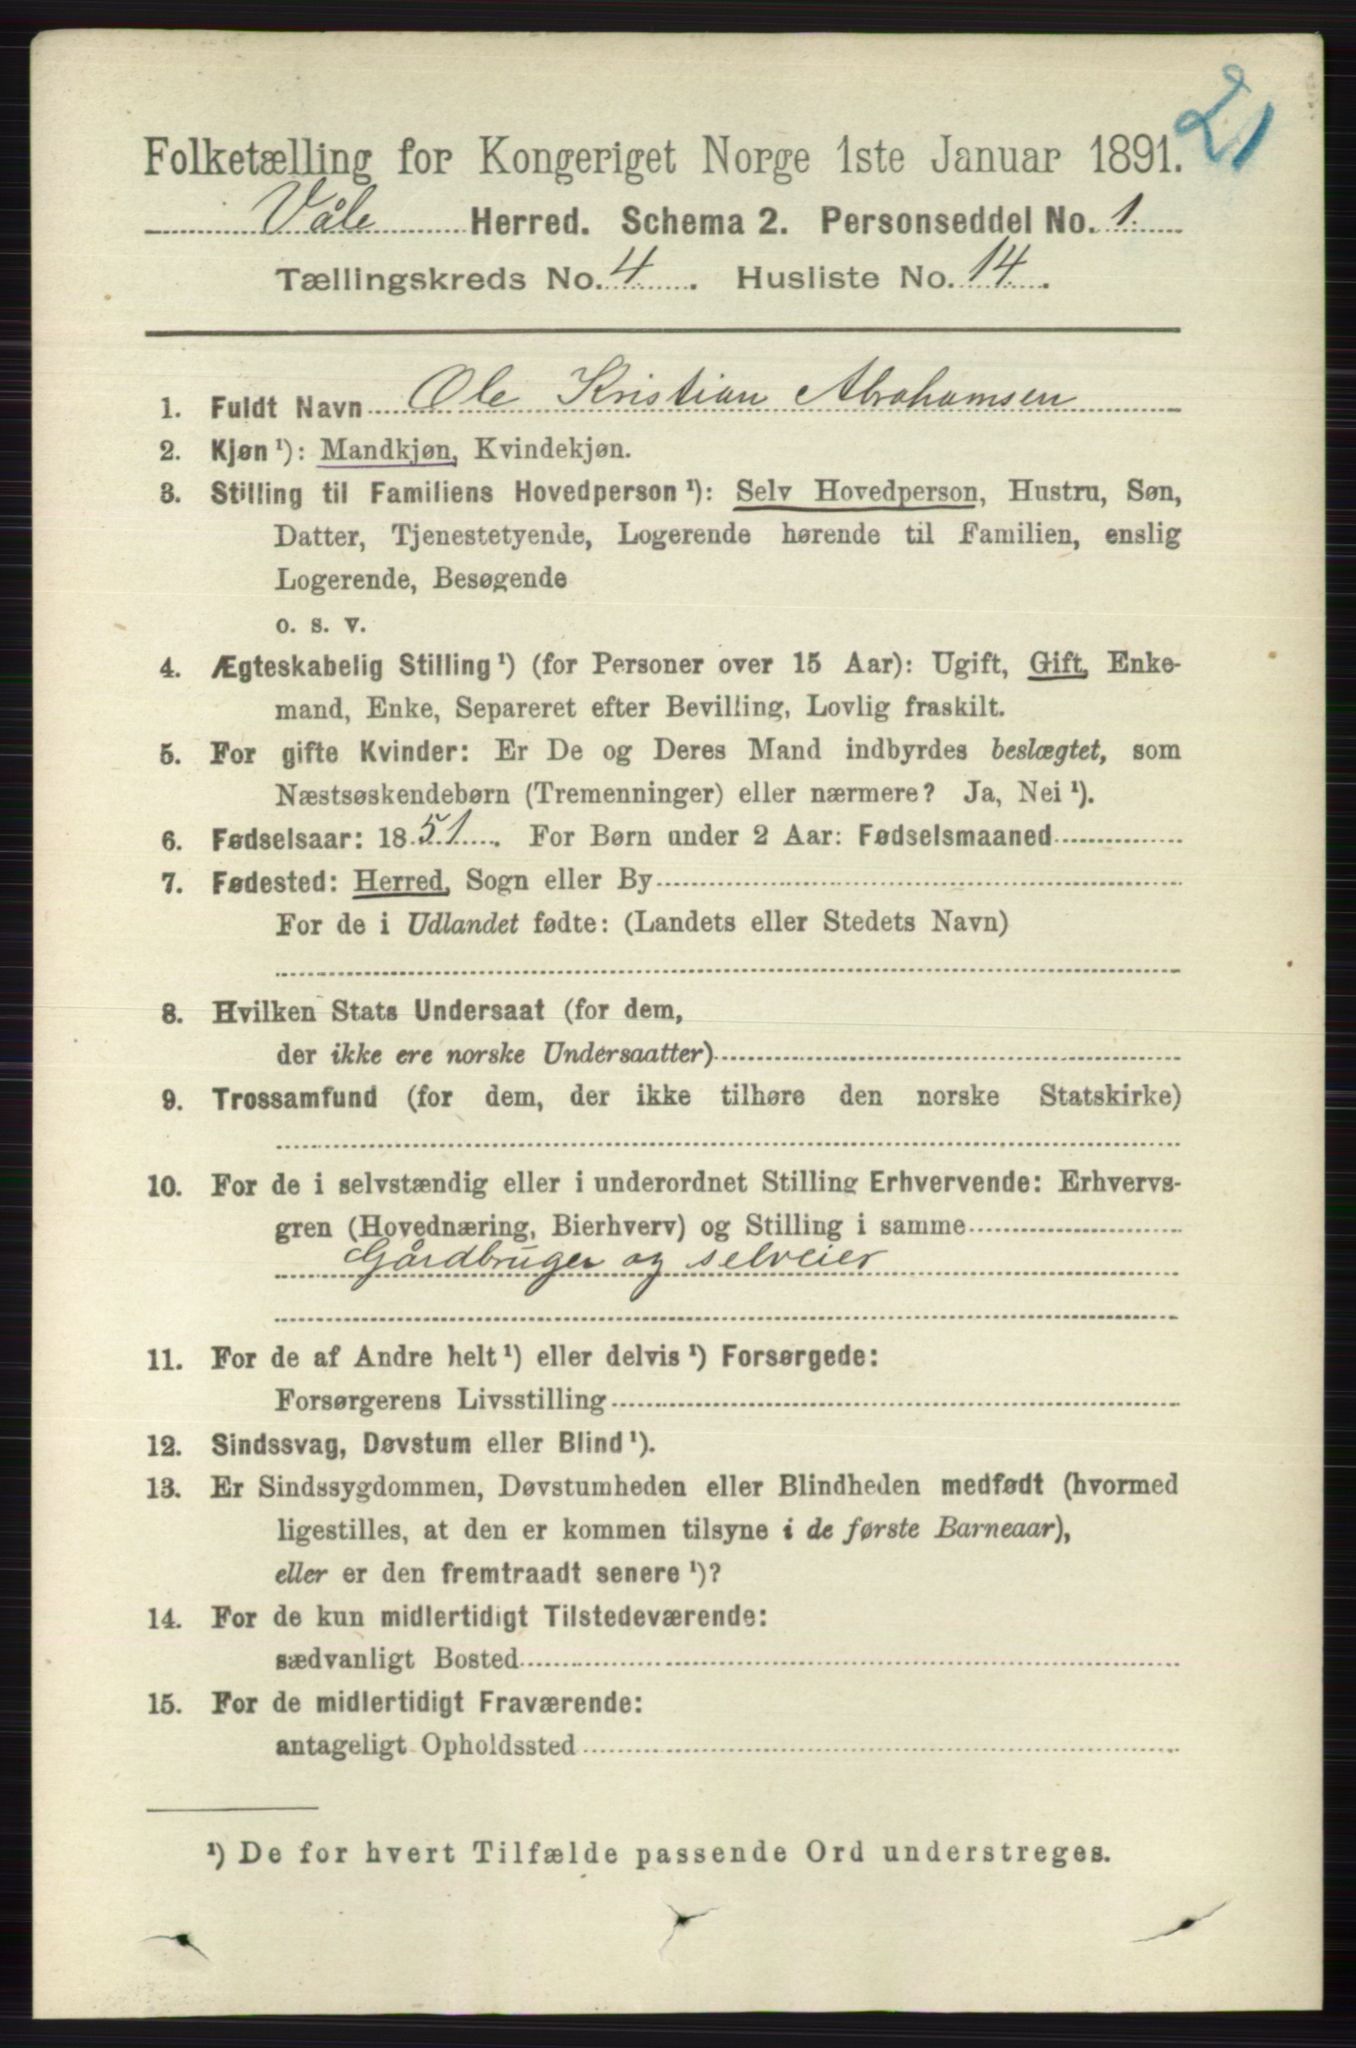 21
Folketælling for Kongeriget Norge 1ste Januar 1891.
Våle Herred. Schema 2. Personseddel No. 1.
Tællingskreds No. 4. Husliste No. 14.
1. Fuldt Navn Ole Kristian Abrahamsen
2. Kjøn ¹): Mandkjøn, Kvindekjøn.
3. Stilling til Familiens Hovedperson ¹): Selv Hovedperson, Hustru, Søn,
Datter, Tjenestetyende, Logerende hørende til Familien, enslig
Logerende, Besøgende
o. s. v.
4. Ægteskabelig Stilling ¹) (for Personer over 15 Aar): Ugift, Gift, Enke-
mand, Enke, Separeret efter Bevilling, Lovlig fraskilt.
5. For gifte Kvinder: Er De og Deres Mand indbyrdes beslægtet, som
Næstsøskendebørn (Tremenninger) eller nærmere? Ja, Nei ¹).
6. Fødselsaar: 1851. For Børn under 2 Aar: Fødselsmaaned
7. Fødested: Herred, Sogn eller By
For de i Udlandet fødte: (Landets eller Stedets Navn)
8. Hvilken Stats Undersaat (for dem,
der ikke ere norske Undersaatter)
9. Trossamfund (for dem, der ikke tilhøre den norske Statskirke)
10. For de i selvstændig eller i underordnet Stilling Erhvervende: Erhvervs-
gren (Hovednæring, Bierhverv) og Stilling i samme
Gårdbruger og selveier
11. For de af Andre helt ¹) eller delvis ¹) Forsørgede:
Forsørgerens Livsstilling
12. Sindssvag, Døvstum eller Blind ¹).
13. Er Sindssygdommen, Døvstumheden eller Blindheden medfødt (hvormed
ligestilles, at den er kommen tilsyne i de første Barneaar),
eller er den fremtraadt senere ¹)?
14. For de kun midlertidigt Tilstedeværende:
sædvanligt Bosted
15. For de midlertidigt Fraværende:
antageligt Opholdssted
¹) De for hvert Tilfælde passende Ord understreges.